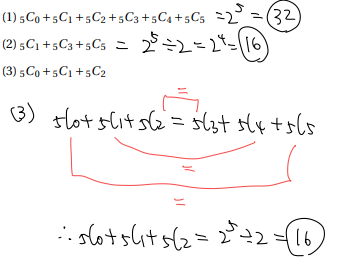 (1) ₅C₀+₅C₁+₅C₂+₅C₃+₅C₄+₅C₅ =2⁵=32
(2) ₅C₁+₅C₃+₅C₅ = 2⁵÷2=2⁴=16
(3) ₅C₀+₅C₁+₅C₂
=
(3) ₅C₀+₅C₁+₅C₂=₅C₃+₅C₄+₅C₅
=
=
∴₅C₀+₅C₁+₅C₂=2⁵÷2=16